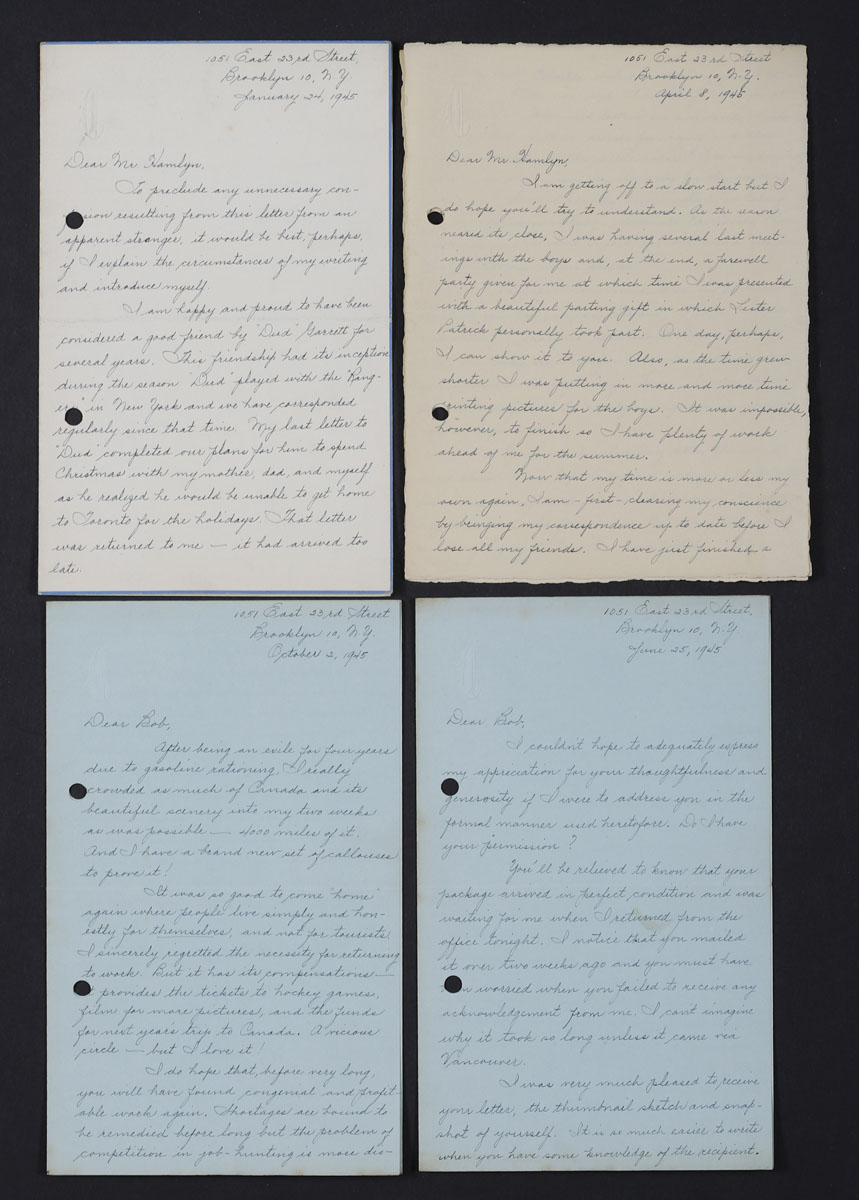 1051 East 23rd Street,
Brooklyn 10, N.Y.
January 24, 1945
Dear Mr. Hamlyn,
To preclude any unnecessary con-
sion resulting from this letter from an
apparent stranger, it would be best, perhaps,
if I explain the circumstances of my writing
and introduce myself.
I am happy and proud to have been
considered a good friend by "Dud" Garrett for
several years. This friendship had its inception
during the season "Dud" played with the "Rang-
ers" in New York and we have corresponded
regularly since that time. My last letter to
"Dud" completed our plans for him to spend
Christmas with my mother, dad, and myself
as he realized he would be unable to get home
to Toronto for the holidays. That letter
was returned to me — it had arrived too
late.
1051 East 23rd Street
Brooklyn 10, N.Y.
April 8, 1945
Dear Mr. Hamlyn,
I am getting off to a slow start but I
do hope you'll try to understand. As the season
neared its close, I was having several last meet-
ings with the boys and, at the end, a farewell
party given for me at which time I was presented
with a beautiful parting gift in which Lester
Patrick personally took part. One day, perhaps,
I can show it to you. Also, as the time grew
shorter I was putting in more and more time
printing pictures for the boys. It was impossible,
however, to finish so I have plenty of work
ahead of me for the summer.
Now that my time is more or less my
own again, I am - first - clearing my conscience
by bringing my correspondence up to date before I
lose all my friends. I have just finished a
1051 East 23rd Street
Brooklyn 10, N.Y.
October 2, 1945
Dear Bob,
After being an exile for four years
due to gasoline rationing, I really
crowded as much of Canada and its
beautiful scenery into my two weeks
as was possible — 4000 miles of it.
And I have a brand new set of callouses
to prove it!
It was so good to come "home"
again where people live simply and hon-
estly for themselves, and not for tourists.
I sincerely regretted the necessity for returning
to work. But it has its compensations —
it provides the tickets to hockey games,
film for more pictures, and the funds
for next year's trip to Canada. A vicious
circle — but I love it!
I do hope that, before very long,
you will have found congenial and profit-
able work again. Shortages are bound to
be remedied before long but the problem of
competition in job-hunting is more dis-
1051 East 23rd Street,
Brooklyn 10, N.Y.
June 25, 1945
Dear Bob,
I couldn't hope to adequately express
my appreciation for your thoughtfulness and
generosity if I were to address you in the
formal manner used heretofore. Do I have
your permission?
You'll be relieved to know that your
package arrived in perfect condition and was
waiting for me when I returned from the
office tonight. I notice that you mailed
it over two weeks ago and you must have
worried when you failed to receive any
acknowledgement from me. I can't imagine
why it took so long unless it came via
Vancouver.
I was very much pleased to receive
your letter, the thumbnail sketch and snap-
shot of yourself. It is so much easier to write
when you have some knowledge of the recipient.